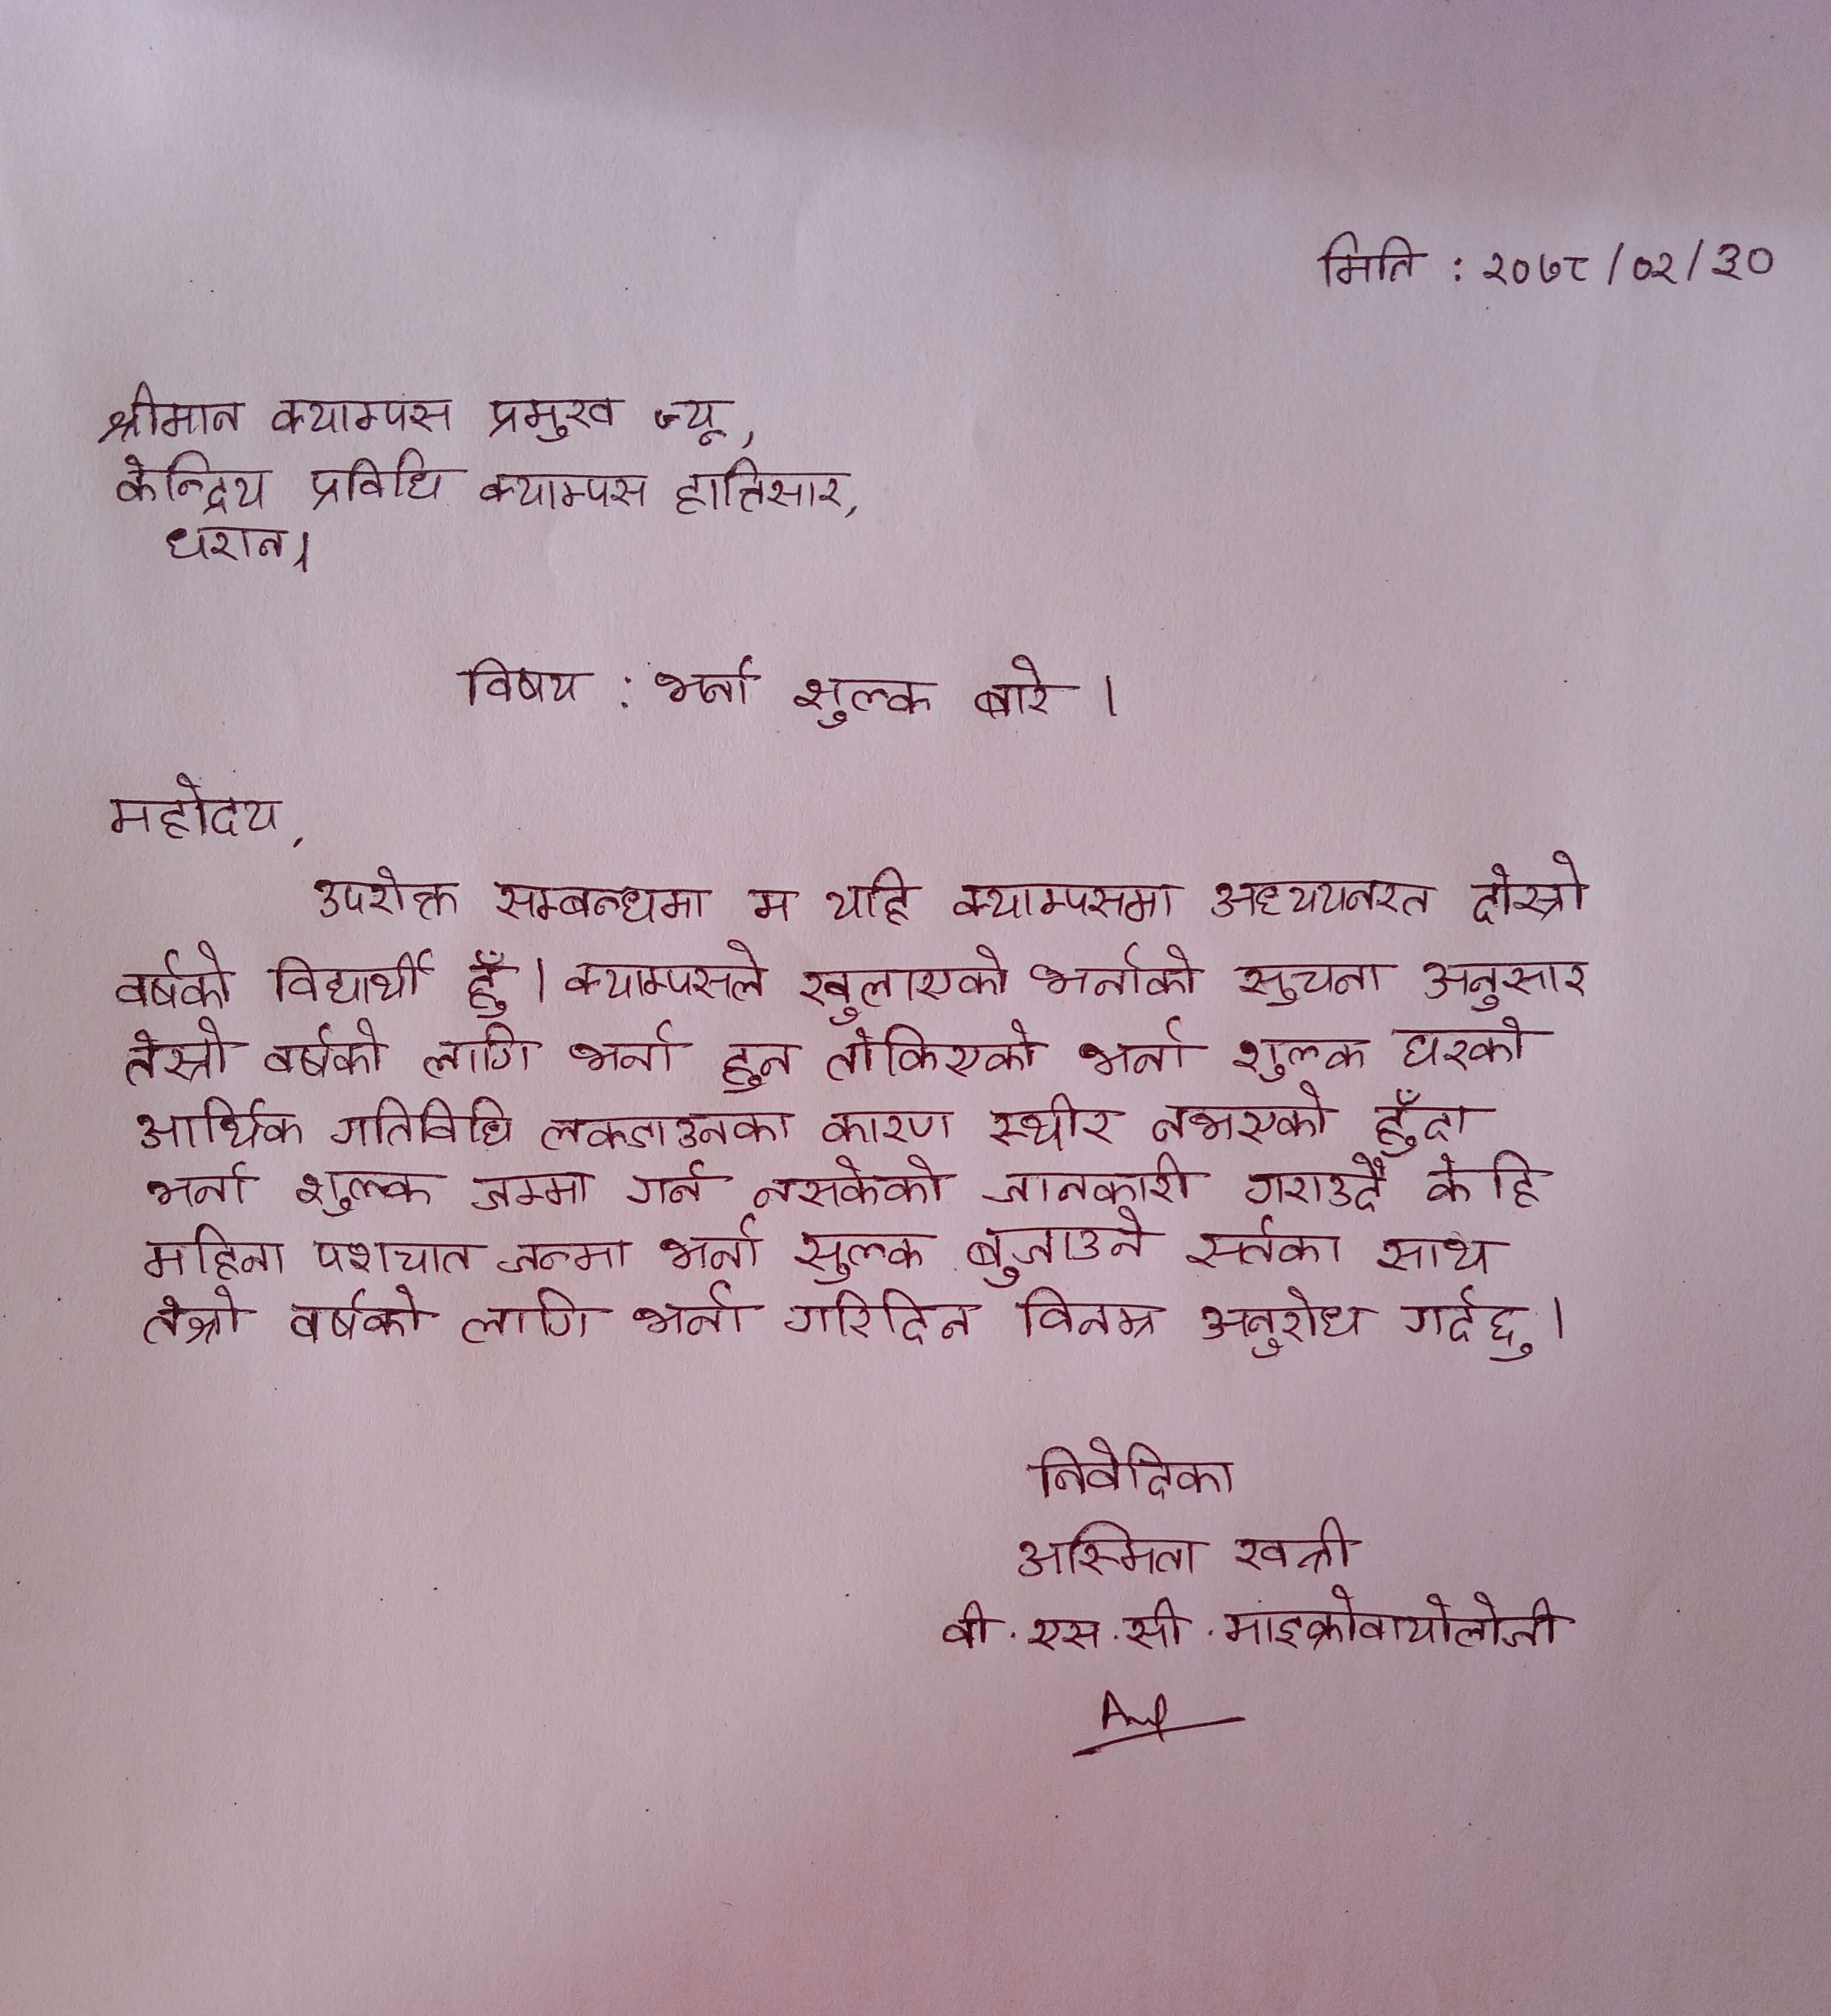 मिति : २०७८/०२/३०
श्रीमान क्याम्पस प्रमुख ज्यू,
केन्द्रिय प्रविधि क्याम्पस हात्तिसार,
धरान।
विषय : भर्ना शुल्क बारे ।
महोदय,
उपरोक्त सम्बन्धमा म यहि क्याम्पसमा अध्ययनरत दोस्रो
वर्षको विद्यार्थी हुँ । क्याम्पसले खुलाएको भर्नाको सुचना अनुसार
तेस्रो वर्षको लागि भर्ना हुन तोकिएको भर्ना शुल्क घरको
आर्थिक गतिविधि लकडाउनका कारण स्थीर नभएको हुँदा
भर्ना शुल्क जम्मा गर्न नसकेको जानकारी गराउदै केहि
महिना पश्चात जन्मा भर्ना सुल्क बुजाउने सर्तका साथ
तेश्रो वर्षको लागि भर्ना गरिदिन विनम्र अनुरोध गर्दछु ।
निवेदिका
अस्मिता खत्री
वी . एस . सी . माइक्रोवायोलोजी